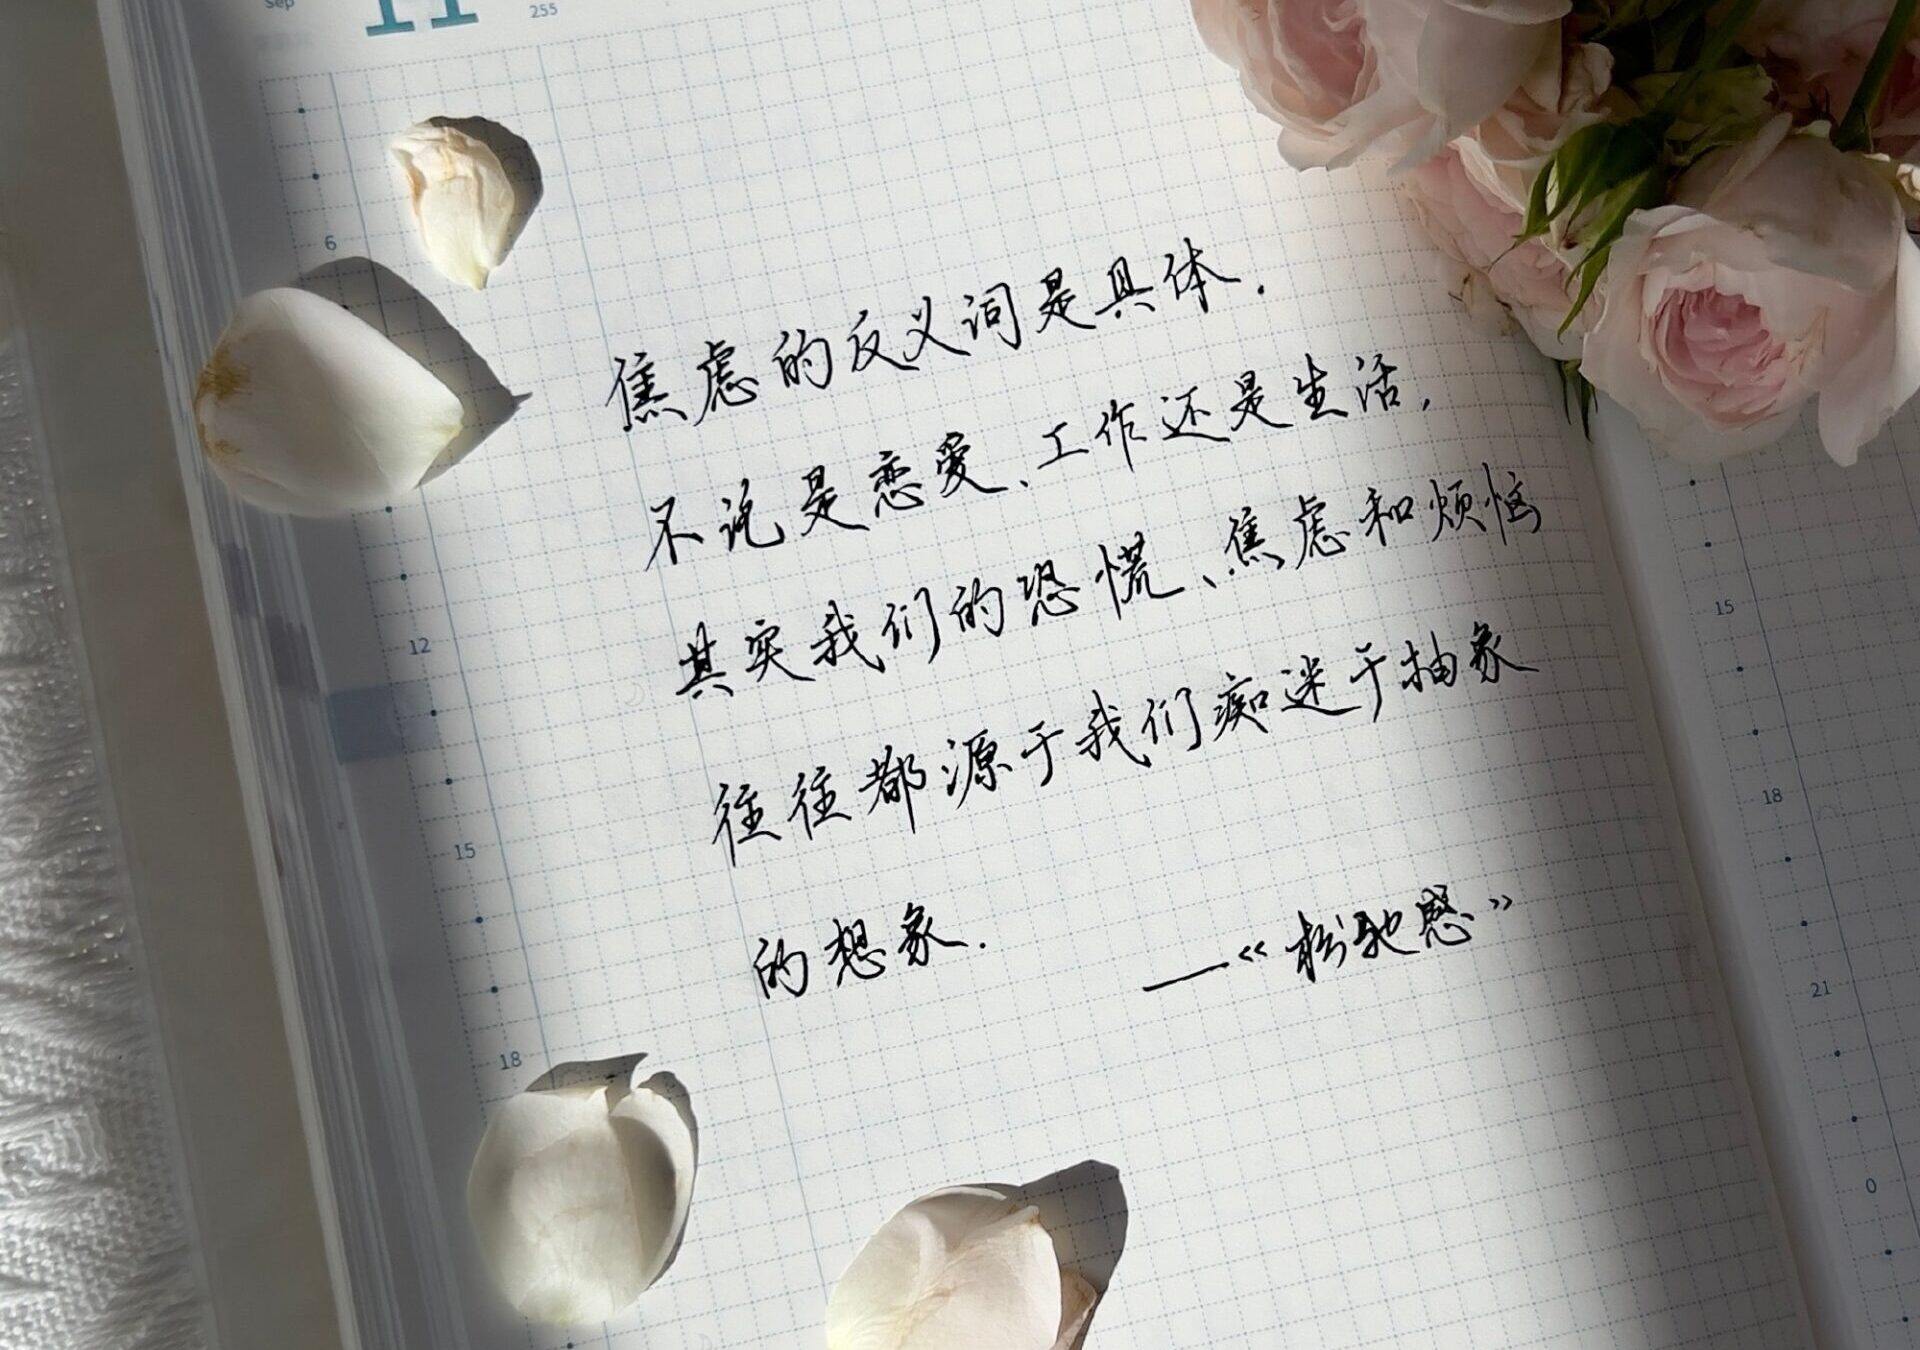 Sep
11
255
6
12
15
18
焦虑的反义词是具体.
不说是恋爱、工作还是生活,
其实我们的恐慌、焦虑和烦恼
往往都源于我们痴迷于抽象
的想象.
——《松弛感》
15
18
21
0